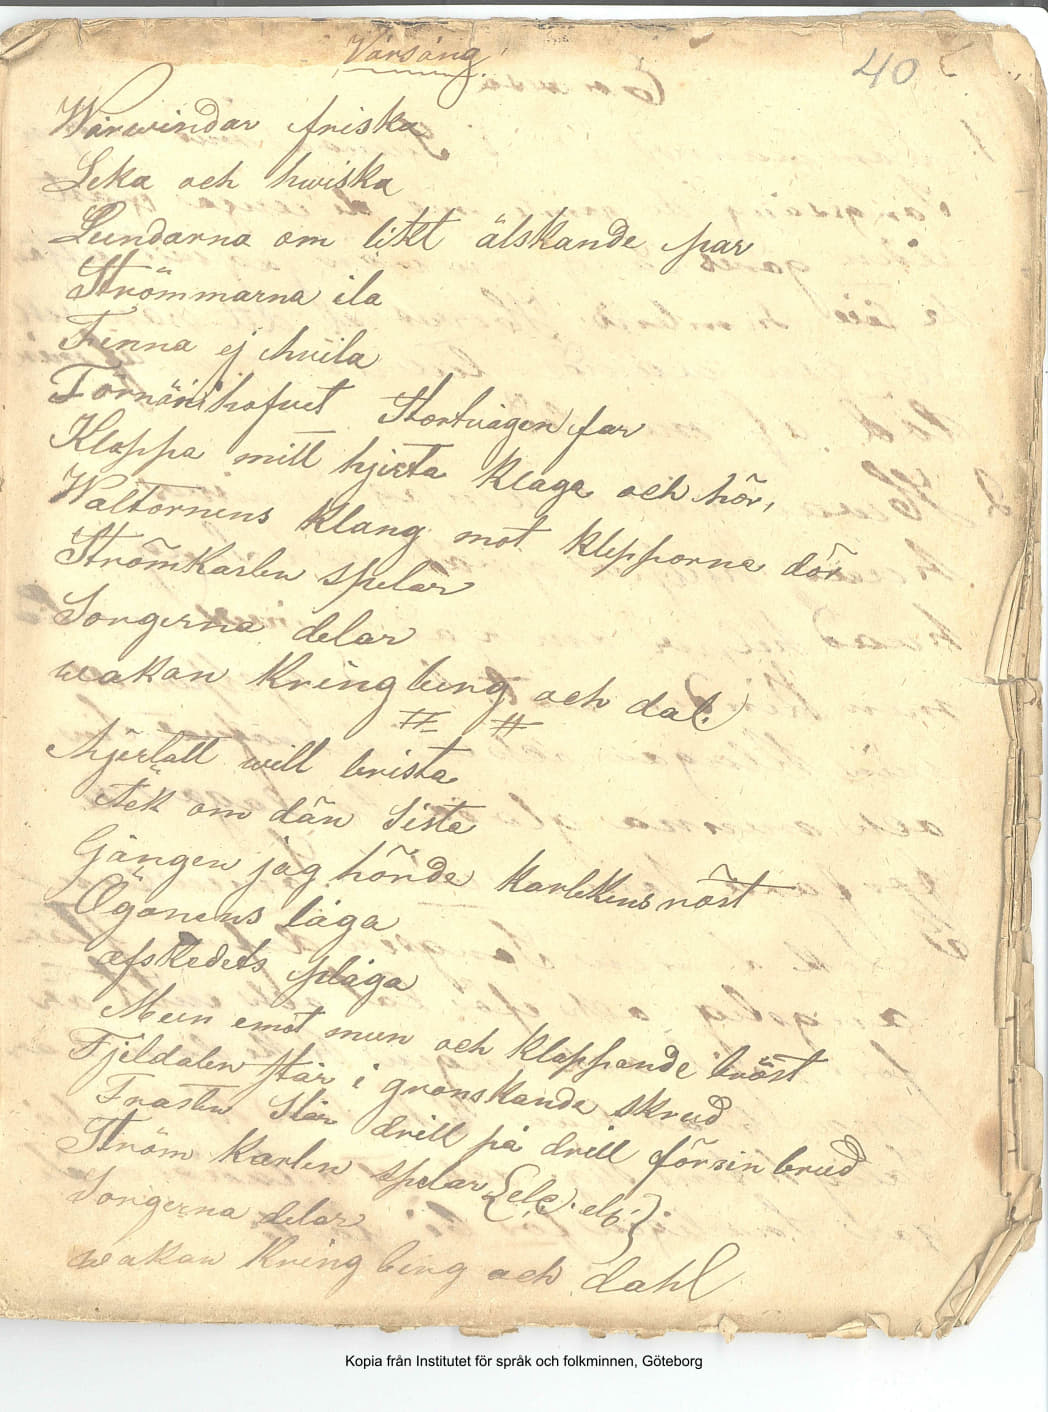 Vårsång
40
Wårwindar friska
Leka och hwiska
Lundarna om likt älskande par
Strömmarna ila
Finna ej hvila
Förrän i hafvet Stortvågen far
Klappa mitt hjerta klaga och hör,
Waltornens klang mot klipporna dör
Strömkarlen spelar
Sorgerna delar
wakan kring berg och dal.
Hjertatt will brista
Ack om dän Sista
Gången jag hörde karlekens röst
Ögonens låga
afskedets plåga
Mun emot mun och klappande bröst
Fjeldalen står i gronskande skrud
Trasten Slår drill på drill för sin brud
Ström karlen spelar {etc. etc.}
Sorgerna delar
wakan kring berg och dahl
Kopia från Institutet för språk och folkminnen, Göteborg